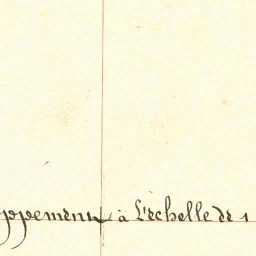 ppement à L'echelle de 1